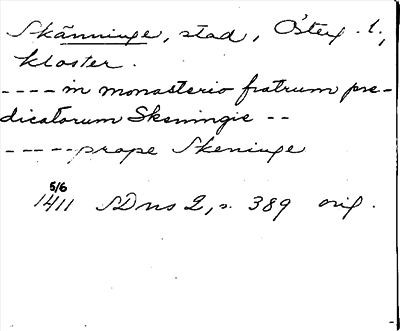 Skänninge, stad, Österg. l.,
kloster.
---- in monasterio fratrum pre-
dicatorum Skeningie --
----- prope Skeninge
5/6
1411 SDns 2, s. 389 orig.